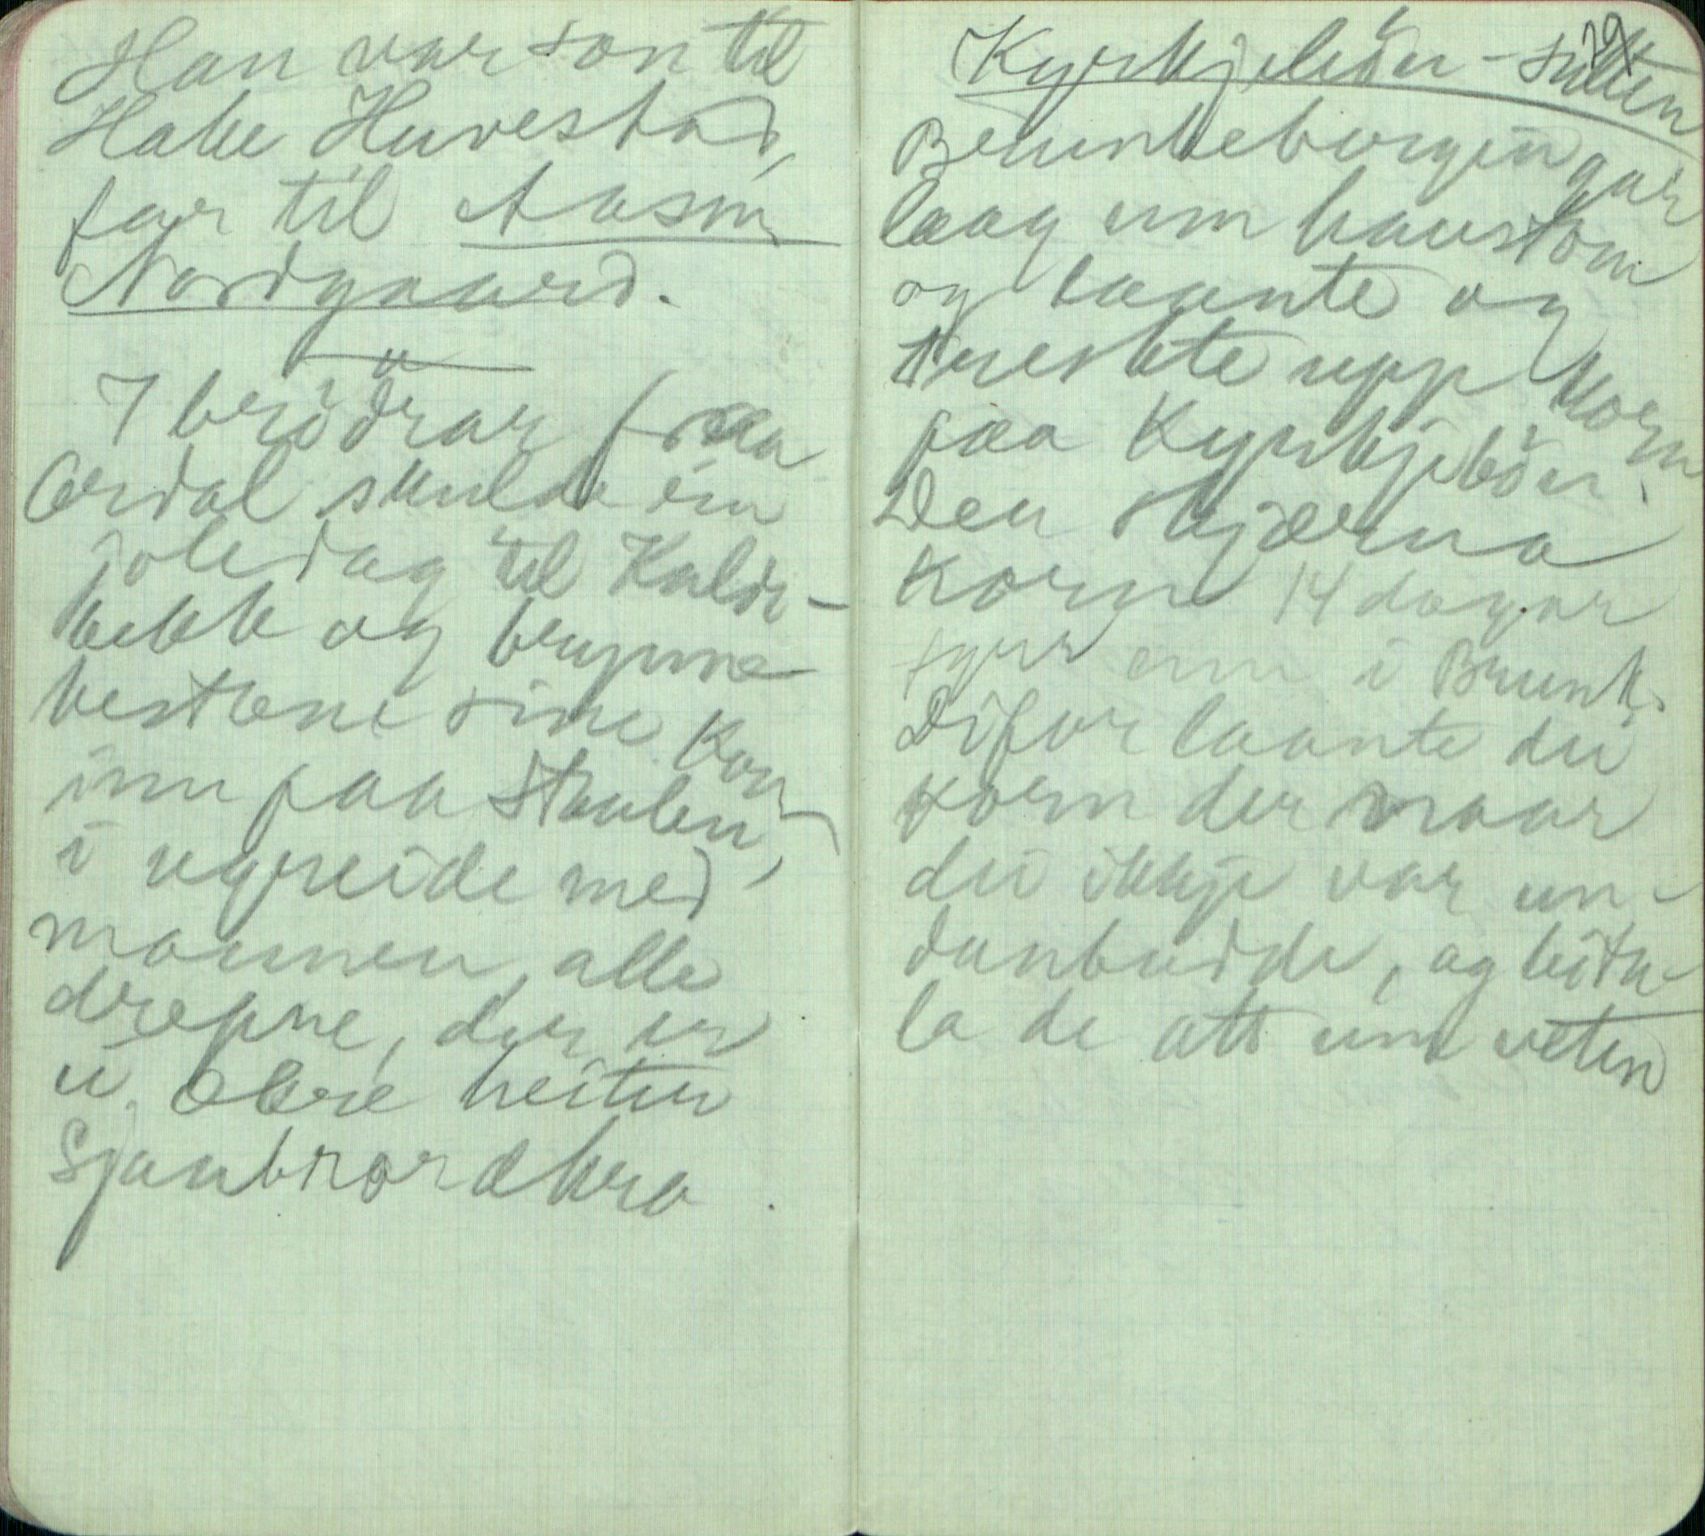 Han var son til
Hake Huvestad,
far til Aasm.
Nordgaard.
7 brödrar fraa
Ordal skulde ein
joledag til Kalde-
bekk og brynne
hestane sine Kom
inn paa Staulen,
i ugreide med
mannen, alle
drepne, der er
ei ekre heiter
Sjaubrorekra.
Kyrkjeböen - sutten
29
Brunkeborgin gar
laag um haustom
og laante og
treskte upp korn
paa Kyrkjeböen.
Den skjærna
korn 14 dagar
fyrr enn i Brunk.
Difor laante dei
korn der naar
dei ikkje var un-
danbudde, og
la de att um vetin